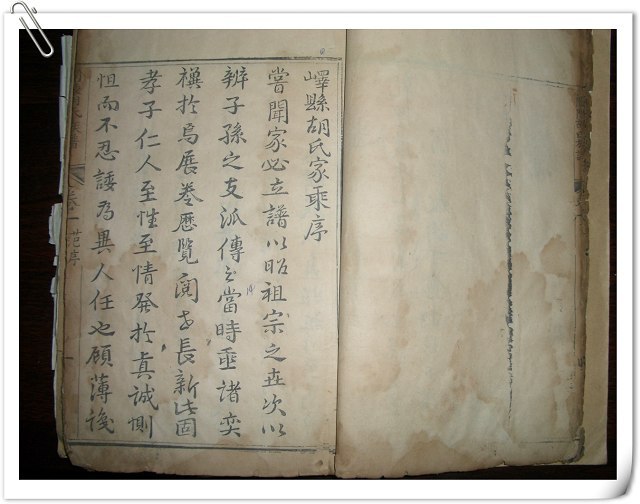 嶧縣胡氏家乘序
嘗聞家必立譜以昭祖宗之世次以
辨子孫之支派傳之當時垂諸奕
禩於焉展卷歷覽閱世長新此固
孝子仁人至性至情發於真誠惻
怛而不忍諉為異人任也顧薄
卷一 范序